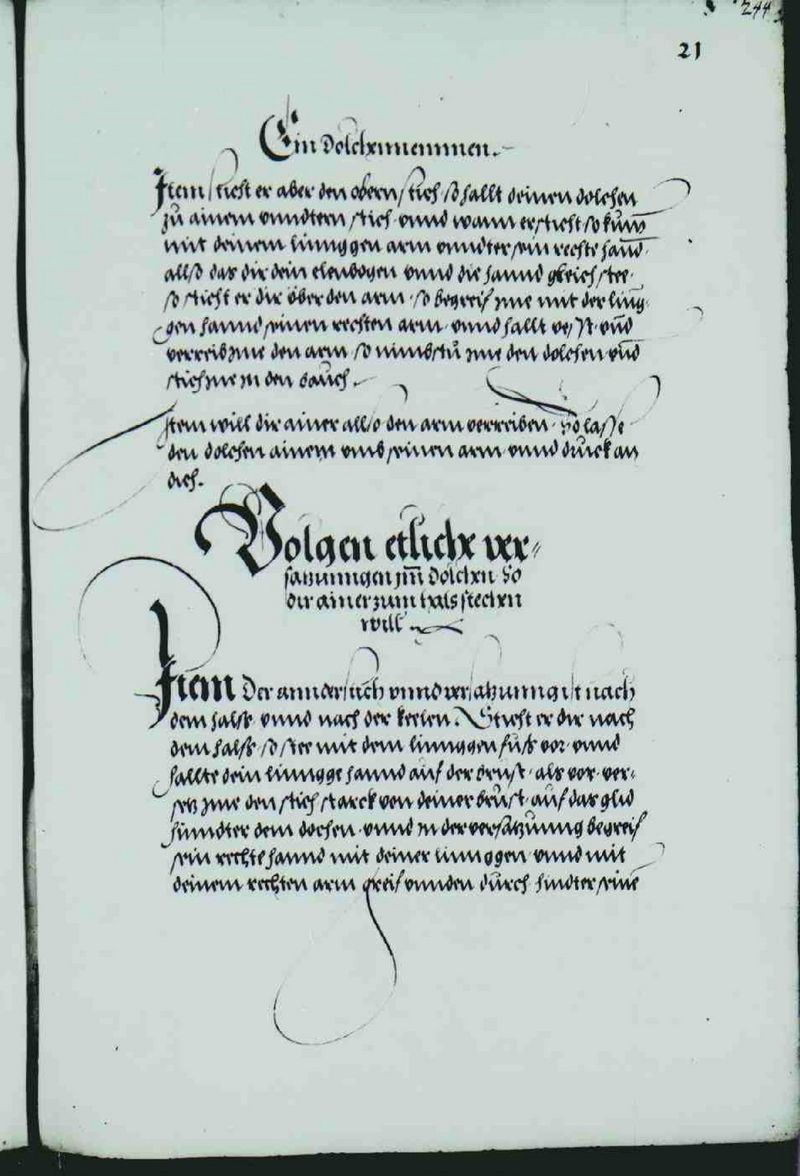 244
21
Ein dolchnnemmen.
Item sticht er aber den obern stich so hallt deinen dolchen
zů ainem vnndtern stich vnnd wann er sticht so kum̄
mit deinem linnggen arm vnndter sein rechte han̄d
allso das dir dein elenbogen vnnd die hannd gleich stee
so sticht er dir über den arm so begreif jne mit der ling
gen hannd seinen rechten arm vnnd hallt vest vnd
verreib jne den arm so nimbstu jme den dolchen vnd
stich jne in den bauch
Item will dir ainer allso den arm verreiben So lasse
den dolchen ainem vmb seinen arm vnnd druck an
dich.
Volgen etliche ver=
satzunngen jm̄ dolchen so
dir ainer zum hals stechen
will
Item Der annder stich vnnd versatzunng ist nach
dem halss vnnd nach der keelen. Sticht er dir nach
dem halss so stee mit dem linnggen fuss vor vnnd
hallte dein lingge hannd auf der brust als vor ver=
setz jme den stich starck von deiner brust auf das glid
hinndter dem dochen vnnd in der versatzunng begreif
sein rechte hannd mit deiner linnggen vnnd mit
deinem rechten arm greif vnnden durch hindter seine